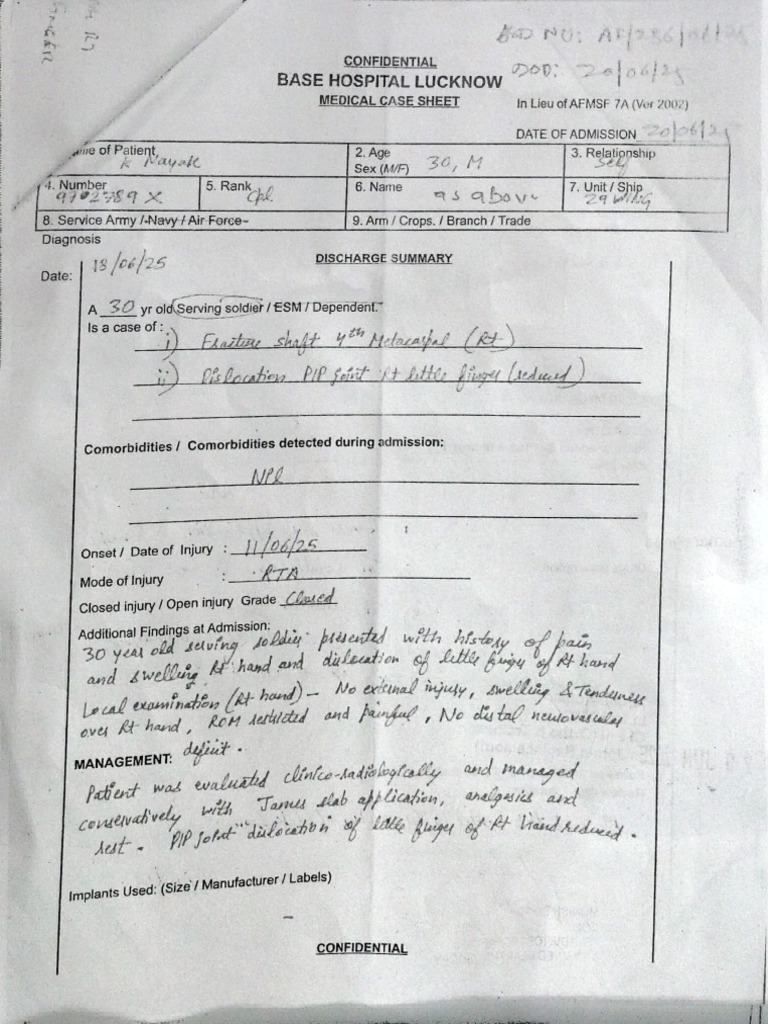 A&D NU: AF/286/06/25
CONFIDENTIAL
DOD: 20/06/25
BASE HOSPITAL LUCKNOW
MEDICAL CASE SHEET
In Lieu of AFMSF 7A (Ver 2002)
DATE OF ADMISSION 20/06/25
me of Patient K Nayak
2. Age Sex (M/F) 30, M
3. Relationship Self
4. Number
5. Rank Cpl.
6. Name as above
7. Unit / Ship 29 WING
8. Service Army / Navy / Air Force
9. Arm / Crops. / Branch / Trade
Diagnosis
DISCHARGE SUMMARY
Date: 13/06/25
A 30 yr old Serving soldier / ESM / Dependent.
Is a case of :
i) Fracture shaft 4th Metacarpal (Rt)
ii) Dislocation PIP joint Rt little finger (reduced)
Comorbidities / Comorbidities detected during admission:
NIL
Onset / Date of Injury : 11/06/25
Mode of Injury : RTA
Closed injury / Open injury Grade Closed
Additional Findings at Admission:
30 year old serving soldier presented with history of pain
and swelling Rt hand and dislocation of little finger of Rt hand
Local examination (Rt hand) - No external injury, swelling & Tenderness
over Rt hand, ROM restricted and painful, No distal neurovascular
deficit.
MANAGEMENT:
Patient was evaluated clinico-radiologically and managed
conservatively with James slab application, analgesics and
rest. PIP joint dislocation of little finger of Rt hand reduced.
Implants Used: (Size / Manufacturer / Labels)
-
CONFIDENTIAL